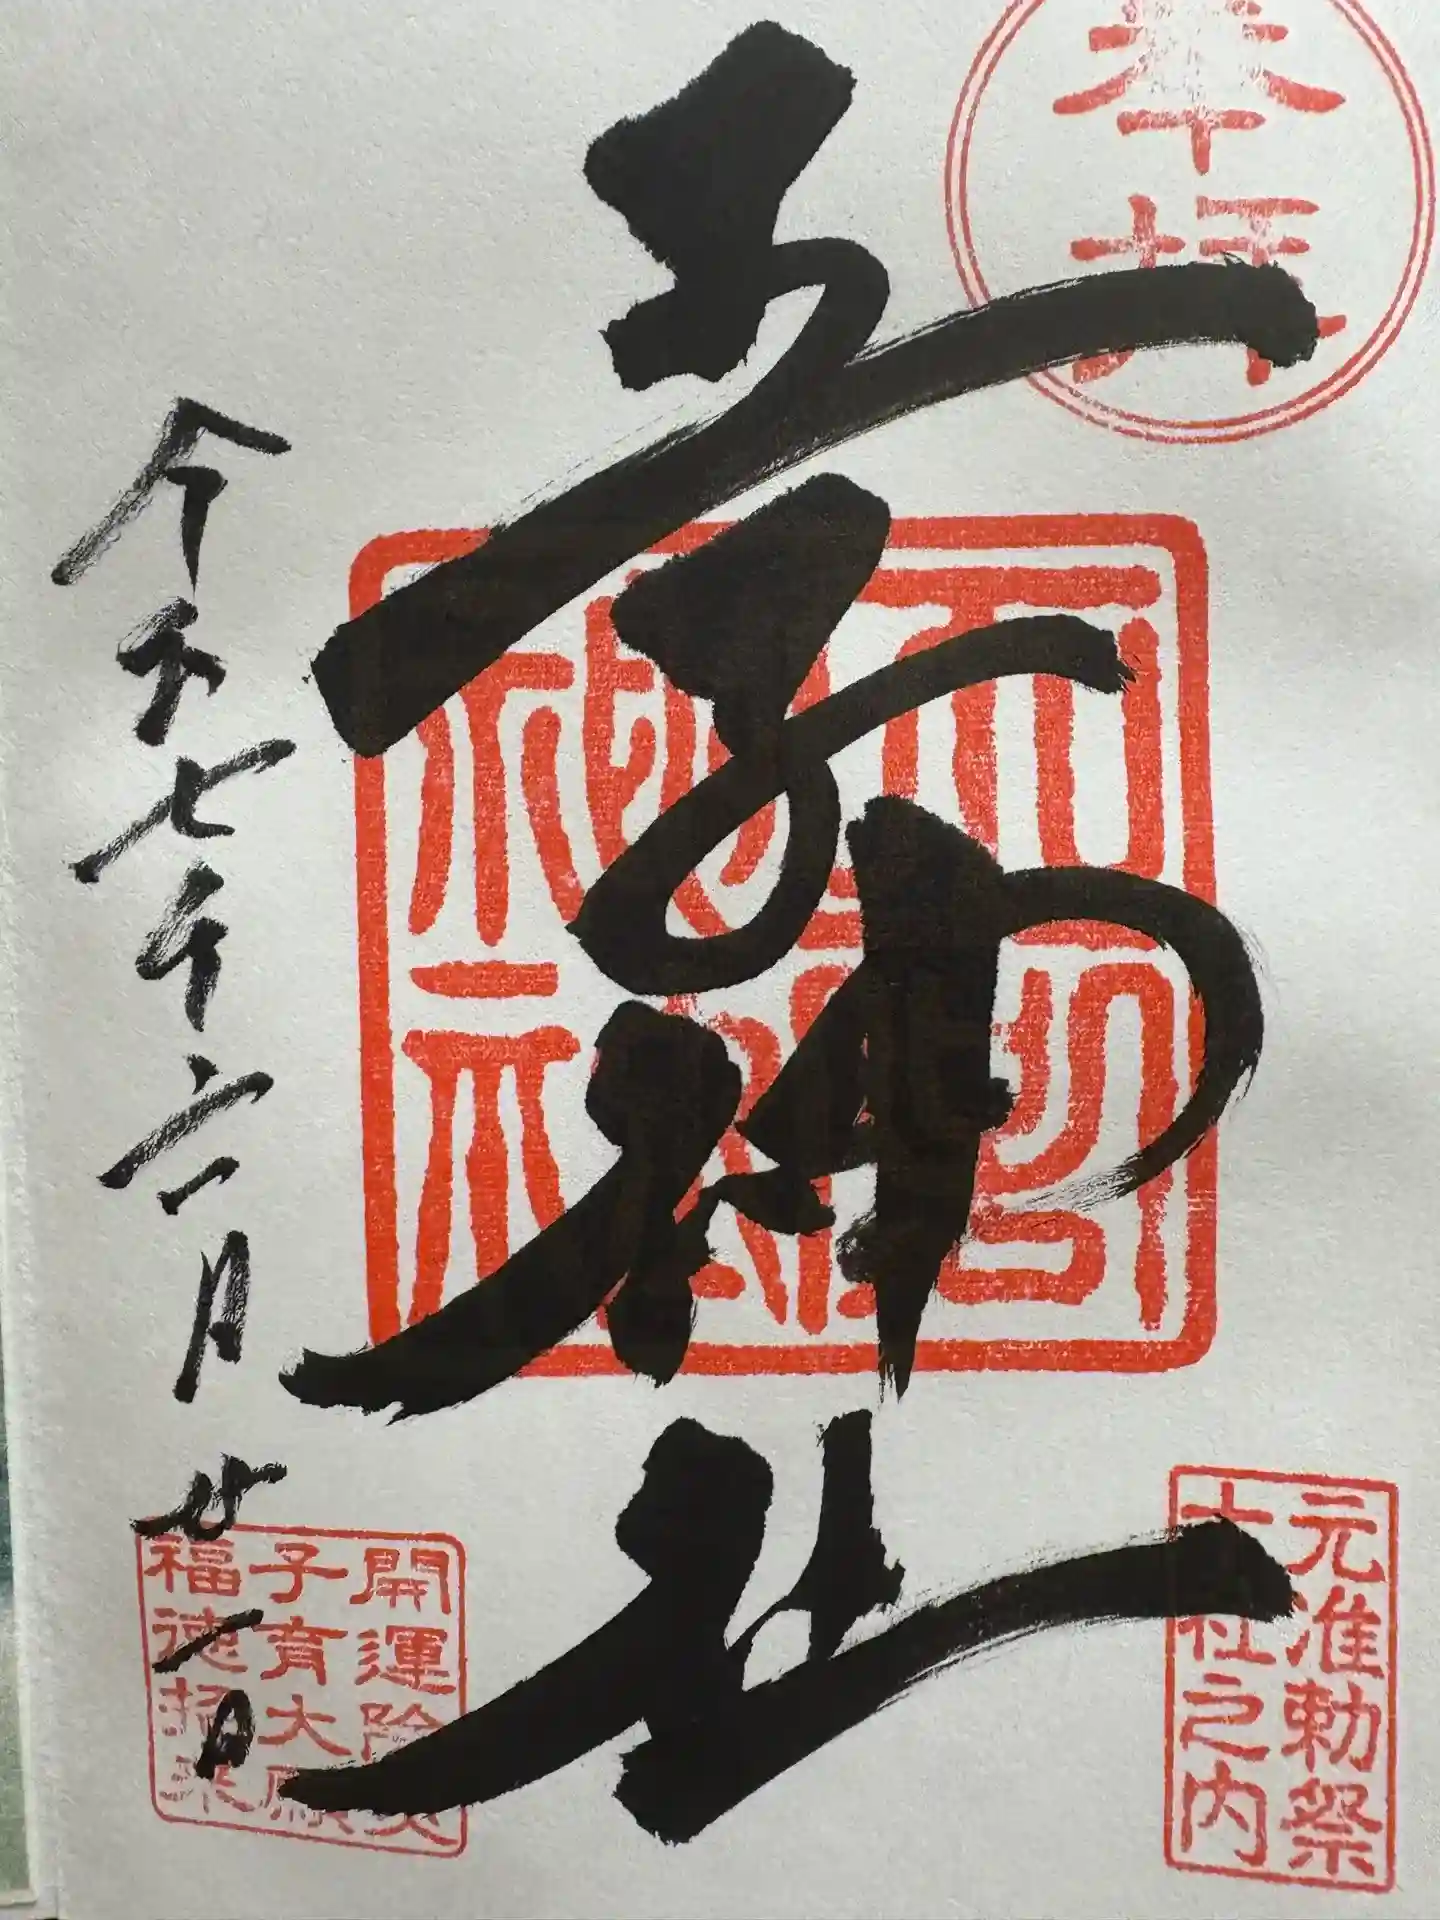 奉拝
元准勅祭
十社之内
王子神社
開運除災
子育大願
福徳招来
令和七年六月廿一日